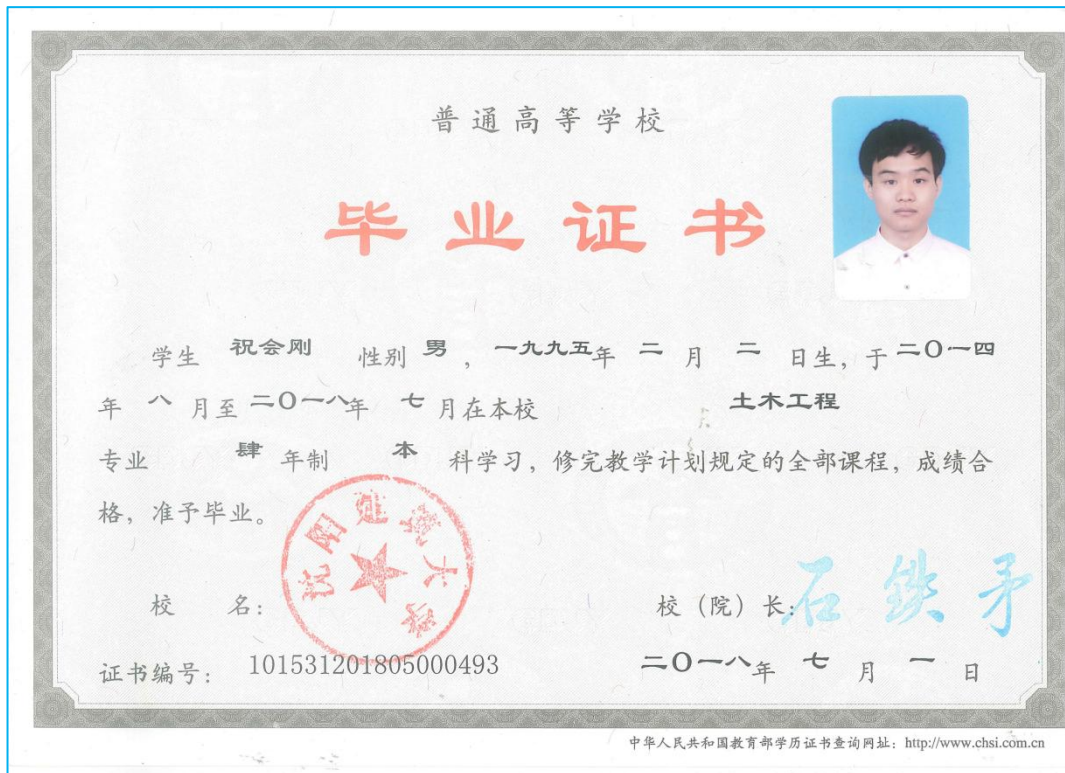 普通高等学校
毕业证书
学生 祝会刚 性别 男，一九九五年 二 月 二 日生，于二〇一四
年 八 月至二〇一八年 七 月在本校 土木工程
专业 肆 年制 本 科学习，修完教学计划规定的全部课程，成绩合
格，准予毕业。
沈阳建筑大学
校 名： 校（院）长：石铁矛
证书编号： 101531201805000493 二〇一八年 七 月 一 日
中华人民共和国教育部学历证书查询网址：http://www.chsi.com.cn